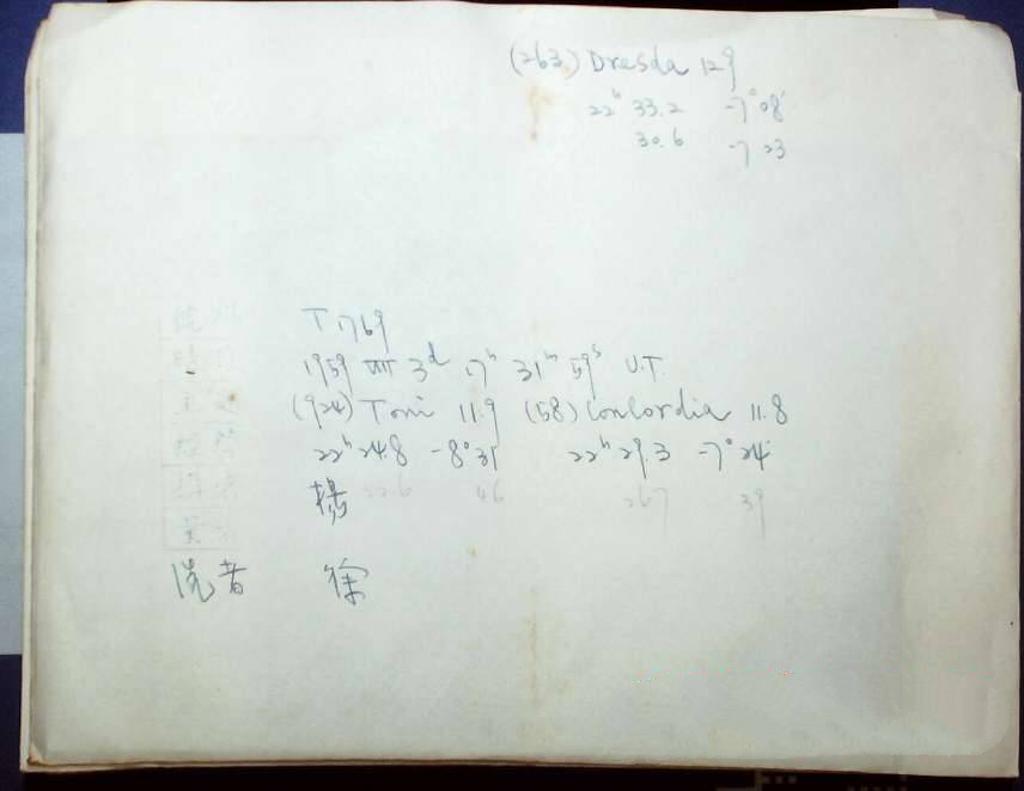 (263) Dresda 12.9
22ʰ 33.2 -7°08'
30.6 -7 23
T 1769
1959 VIII 3ᵈ 17ʰ 31ᵐ 59ˢ U.T.
(924) Toni 11.9 (58) Concordia 11.8
22ʰ 24.8 -8°31 22ʰ 29.3 -7°24'
楊 22.6 46 26.7 39
洗者 徐